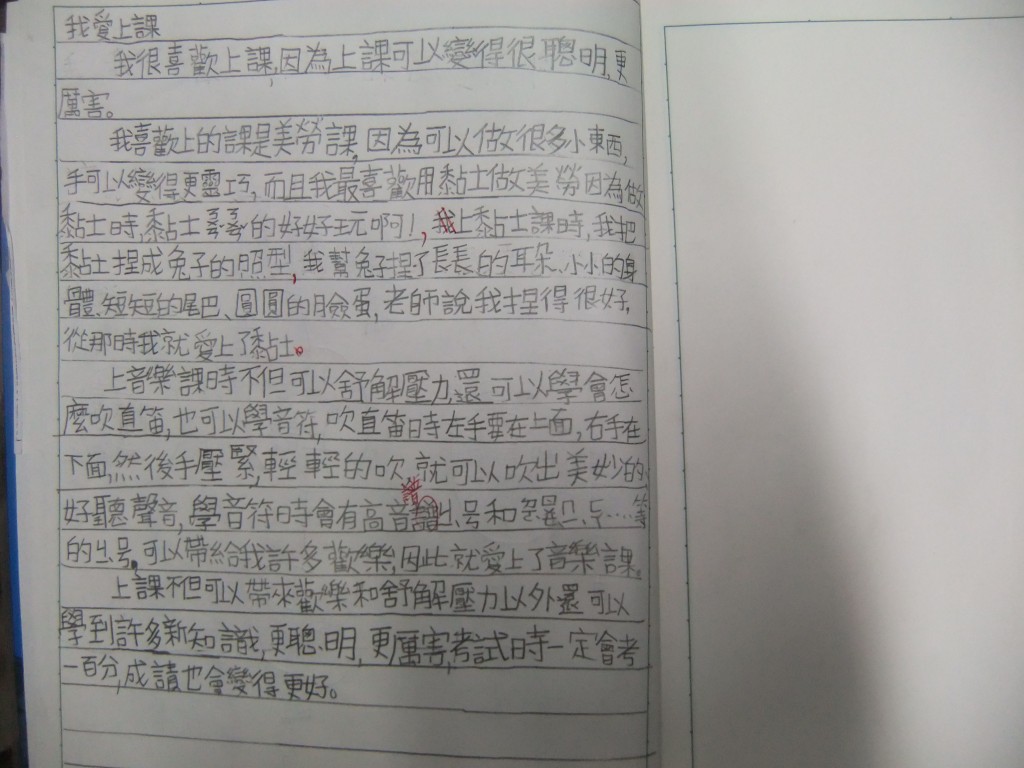 我愛上課
我很喜歡上課,因為上課可以變得很聰明,更
厲害。
我喜歡上的課是美勞課,因為可以做很多小東西,
手可以變得更靈巧,而且我最喜歡用黏土做美勞因為做
黏土時,黏土ㄋㄋ的好好玩啊!,我上黏土課時,我把
黏土捏成兔子的照型,我幫兔子捏了長長的耳朵、小小的身
體、短短的尾巴、圓圓的臉蛋,老師說我捏得很好,
從那時我就愛上了黏土。
上音樂課時不但可以舒解壓力還可以學會怎
麼吹直笛,也可以學音符,吹直笛時左手要在上面,右手在
下面,然後手壓緊,輕輕的吹,就可以吹出美妙的
好聽聲音,學音符時會有高音譜ㄐㄧ號和
的ㄐㄧ號,可以帶給我許多歡樂,因此就愛上了音樂課。
上課不但可以帶來歡樂和舒解壓力以外還可以
學到許多新知識,更聰明,更厲害,考試時一定會考
一百分,成請也會變得更好。